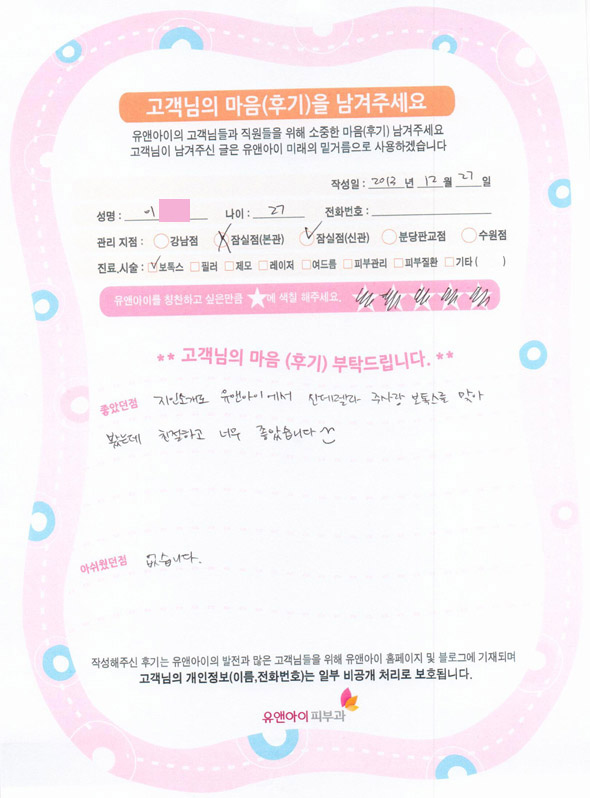 고객님의 마음(후기)을 남겨주세요
유앤아이의 고객님들과 직원들을 위해 소중한 마음(후기) 남겨주세요
고객님이 남겨주신 글은 유앤아이 미래의 밑거름으로 사용하겠습니다
작성일 : 2013 년 12 월 27 일
성명 : 이 나이 : 27 전화번호 :
관리 지점 : 강남점 잠실점(본관) 잠실점(신관) 분당판교점 수원점
진료,시술 : 보톡스 필러 제모 레이저 여드름 피부관리 피부질환 기타 ( )
유앤아이를 칭찬하고 싶은만큼 ★에 색칠 해주세요.
** 고객님의 마음 (후기) 부탁드립니다. **
좋았던점 지인소개로 유앤아이에서 신데렐라 주사랑 보톡스를 맞아
봤는데 친절하고 너무 좋았습니다 ^^
아쉬웠던점 없습니다.
작성해주신 후기는 유앤아이의 발전과 많은 고객님들을 위해 유앤아이 홈페이지 및 블로그에 기재되며
고객님의 개인정보(이름,전화번호)는 일부 비공개 처리로 보호됩니다.
유앤아이 피부과